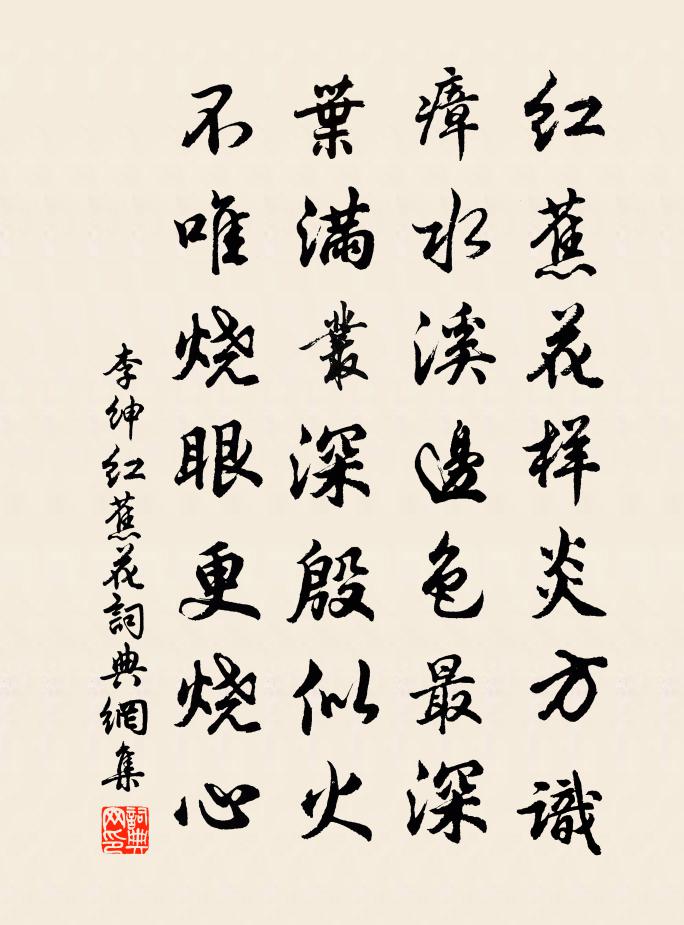 红蕉花样炎方識
瘴水溪邊色最深
葉满叢深殷似火
不唯烧眼更烧心
李绅红蕉花詞典網集
詞典
网印